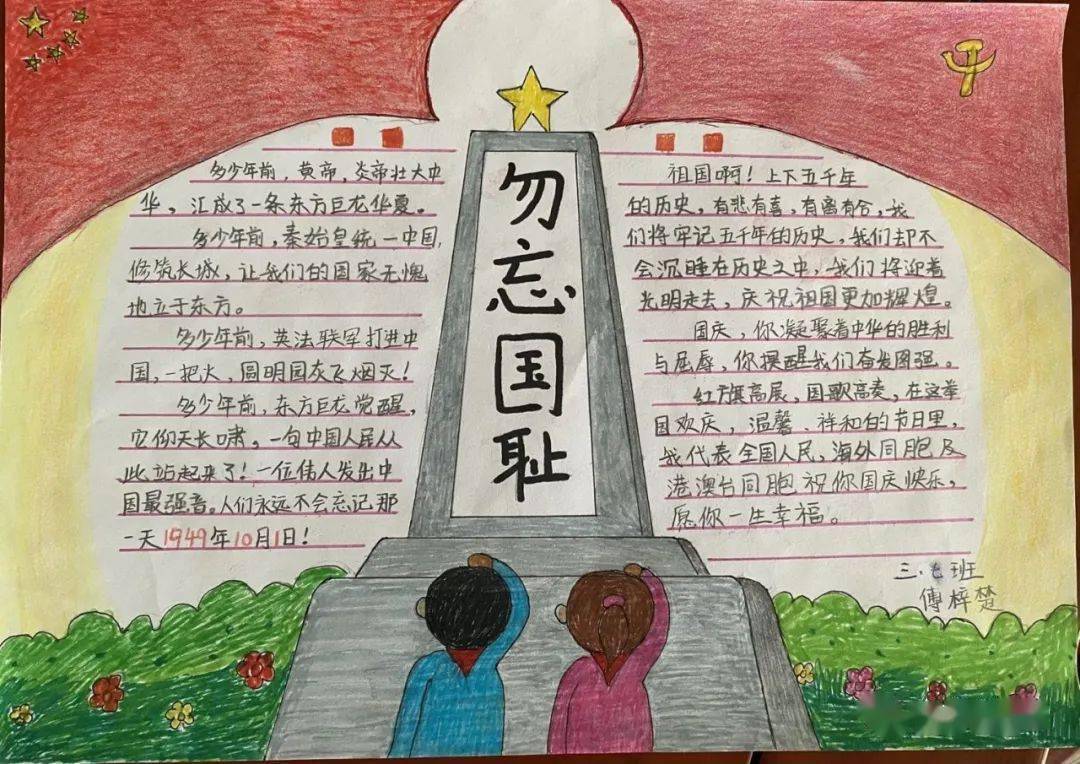 勿忘国耻
多少年前，黄帝，炎帝壮大中
华，汇成了一条东方巨龙华夏。
多少年前，秦始皇统一中国，
修筑长城，让我们的国家无愧
地立于东方。
多少年前，英法联军打进中
国，一把火，圆明园灰飞烟灭！
多少年前，东方巨龙觉醒，
它仰天长啸，一句中国人民从
此站起来了！一位伟人发出中
国最强音。人们永远不会忘记那
一天1949年10月1日！
祖国啊！上下五千年
的历史，有悲有喜，有离有合，我
们将牢记五千年的历史，我们却不
会沉睡在历史之中，我们将迎着
光明走去，庆祝祖国更加辉煌。
国庆，你凝聚着中华的胜利
与屈辱，你摸醒我们奋发图强。
红旗高展，国歌高奏，在这举
国欢庆，温馨、祥和的节日里，
我代表全国人民，海外同胞及
港澳台同胞祝你国庆快乐，
愿你一生幸福。
三.七班
傅梓楚